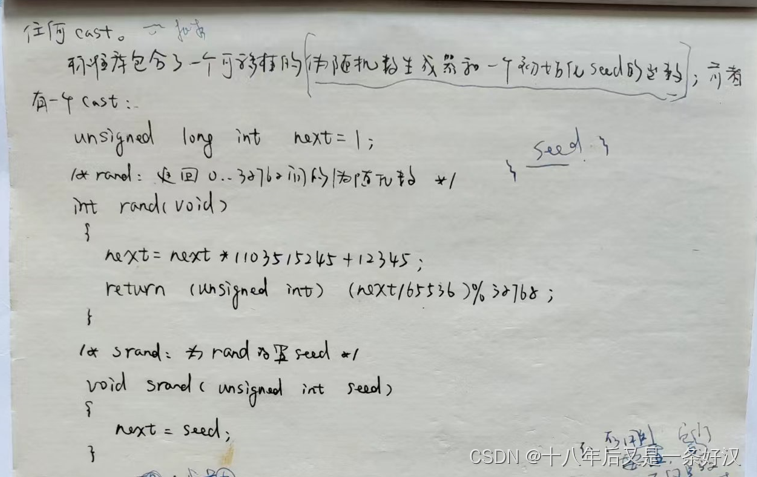 任何 cast。
标准库包含了一个可移植的伪随机数生成器和一个初始化seed的函数；前者
有一个cast：
unsigned long int next=1;
/* rand: 返回 0..32767间的伪随机数 */
int rand(void)
{
next = next *1103515245+12345;
return (unsigned int) (next/65536)%32768;
}
/* srand: 为 rand 设置seed */
void srand( unsigned int seed)
{
next = seed;
}
} seed. }
CSDN @十八年后又是一条好汉